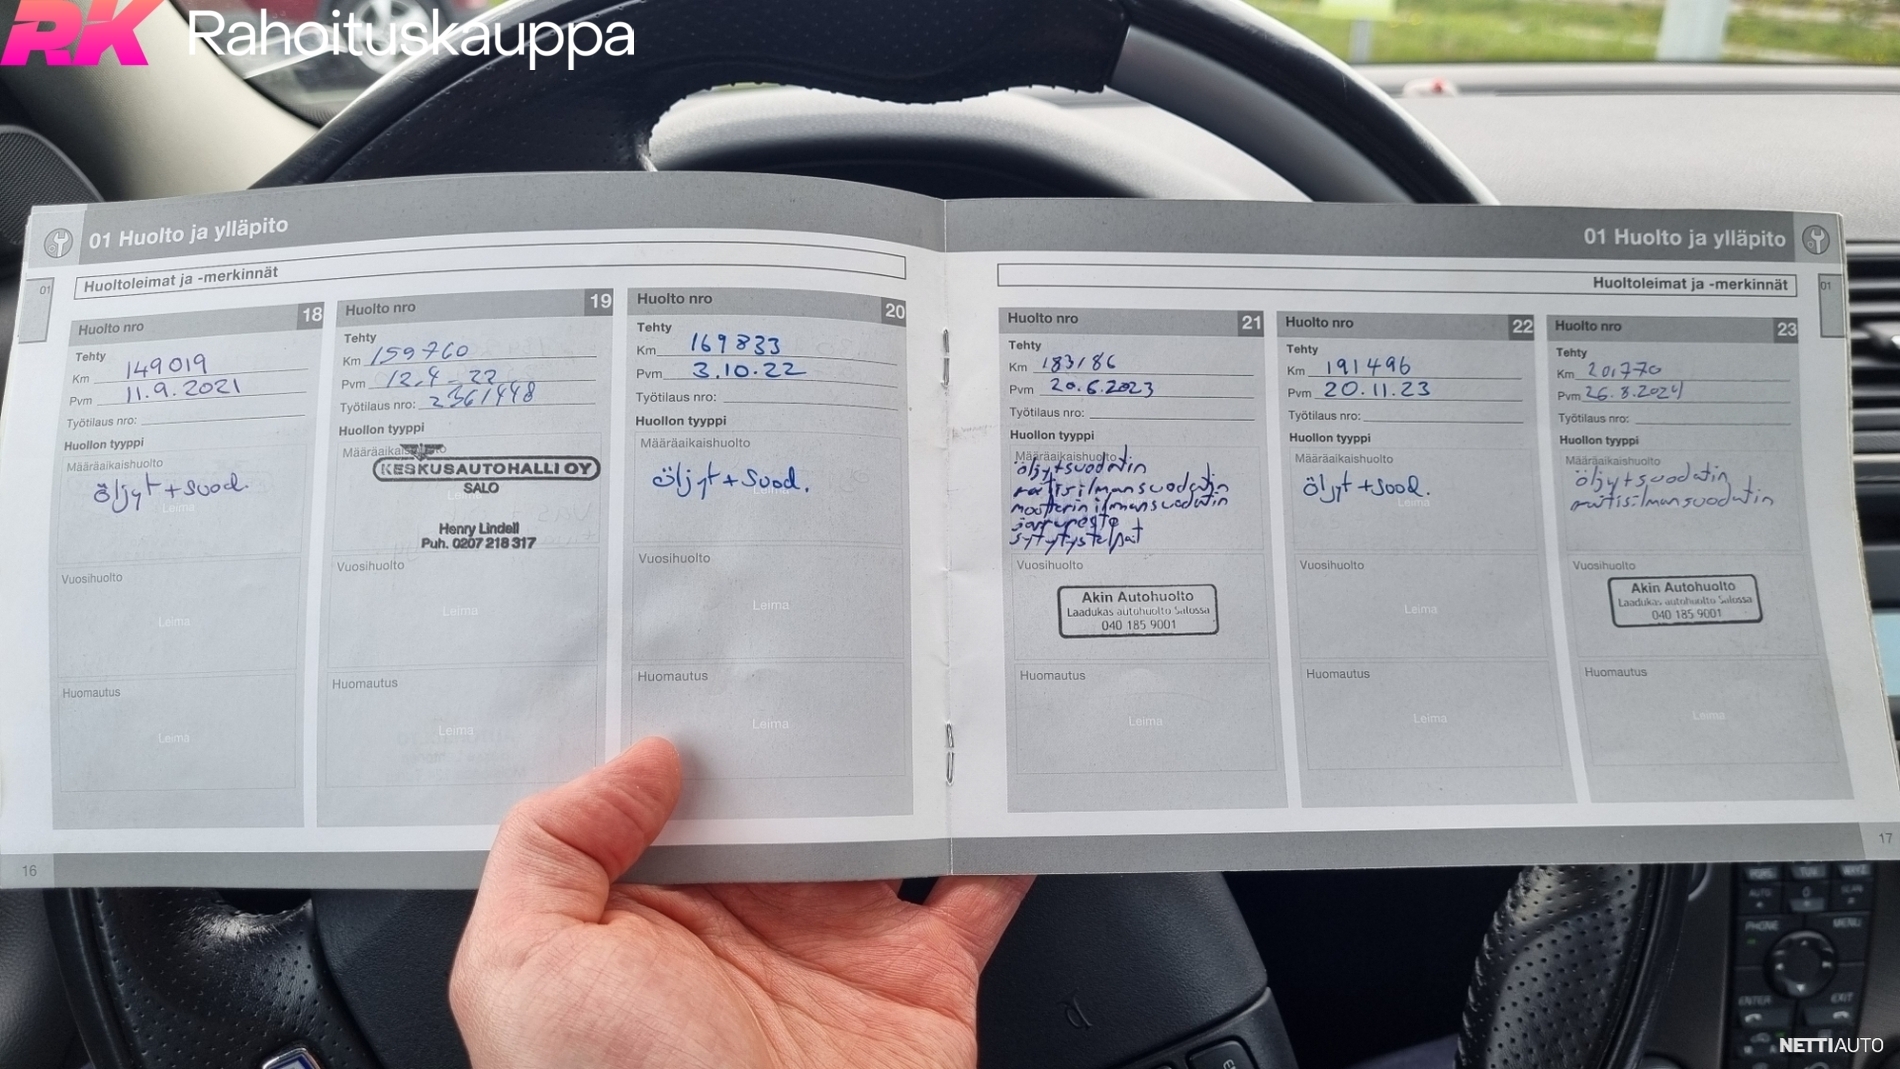 RK Rahoituskauppa
01 Huolto ja ylläpito
Huoltoleimat ja -merkinnät
01
Huolto nro 18
Tehty
Km 149019
Pvm 11.9.2021
Työtilaus nro:
Huollon tyyppi
Määräaikaishuolto
öljyt + suod.
Leima
Vuosihuolto
Leima
Huomautus
Leima
Huolto nro 19
Tehty
Km 159760
Pvm 12.4-22
Työtilaus nro: 2361448
Huollon tyyppi
KESKUSAUTOHALLI OY
SALO
Henry Lindell
Puh. 0207 218 317
Vuosihuolto
Leima
Huomautus
Leima
Huolto nro 20
Tehty
Km 169833
Pvm 3.10.22
Työtilaus nro:
Huollon tyyppi
Määräaikaishuolto
öljyt + suod.
Leima
Vuosihuolto
Leima
Huomautus
Leima
16
01 Huolto ja ylläpito
Huoltoleimat ja -merkinnät
01
Huolto nro 21
Tehty
Km 183186
Pvm 20.6.2023
Työtilaus nro:
Huollon tyyppi
Määräaikaishuolto
öljy+suodatin
raitisilmansuodatin
moottorin ilmansuodatin
jarruneste
sytytystulpat
Vuosihuolto
Akin Autohuolto
Laadukas autohuolto Salossa
040 185 9001
Huomautus
Leima
Huolto nro 22
Tehty
Km 191496
Pvm 20.11.23
Työtilaus nro:
Huollon tyyppi
Määräaikaishuolto
öljyt + suod.
Leima
Vuosihuolto
Leima
Huomautus
Leima
Huolto nro 23
Tehty
Km 201770
Pvm 26.8.2024
Työtilaus nro:
Huollon tyyppi
Määräaikaishuolto
öljy+suodatin
raitisilmansuodatin
Vuosihuolto
Akin Autohuolto
Laadukas autohuolto Salossa
040 185 9001
Huomautus
Leima
17
AUTO
SCAN
PHONE
MENU
ENTER
EXIT
NETTIAUTO